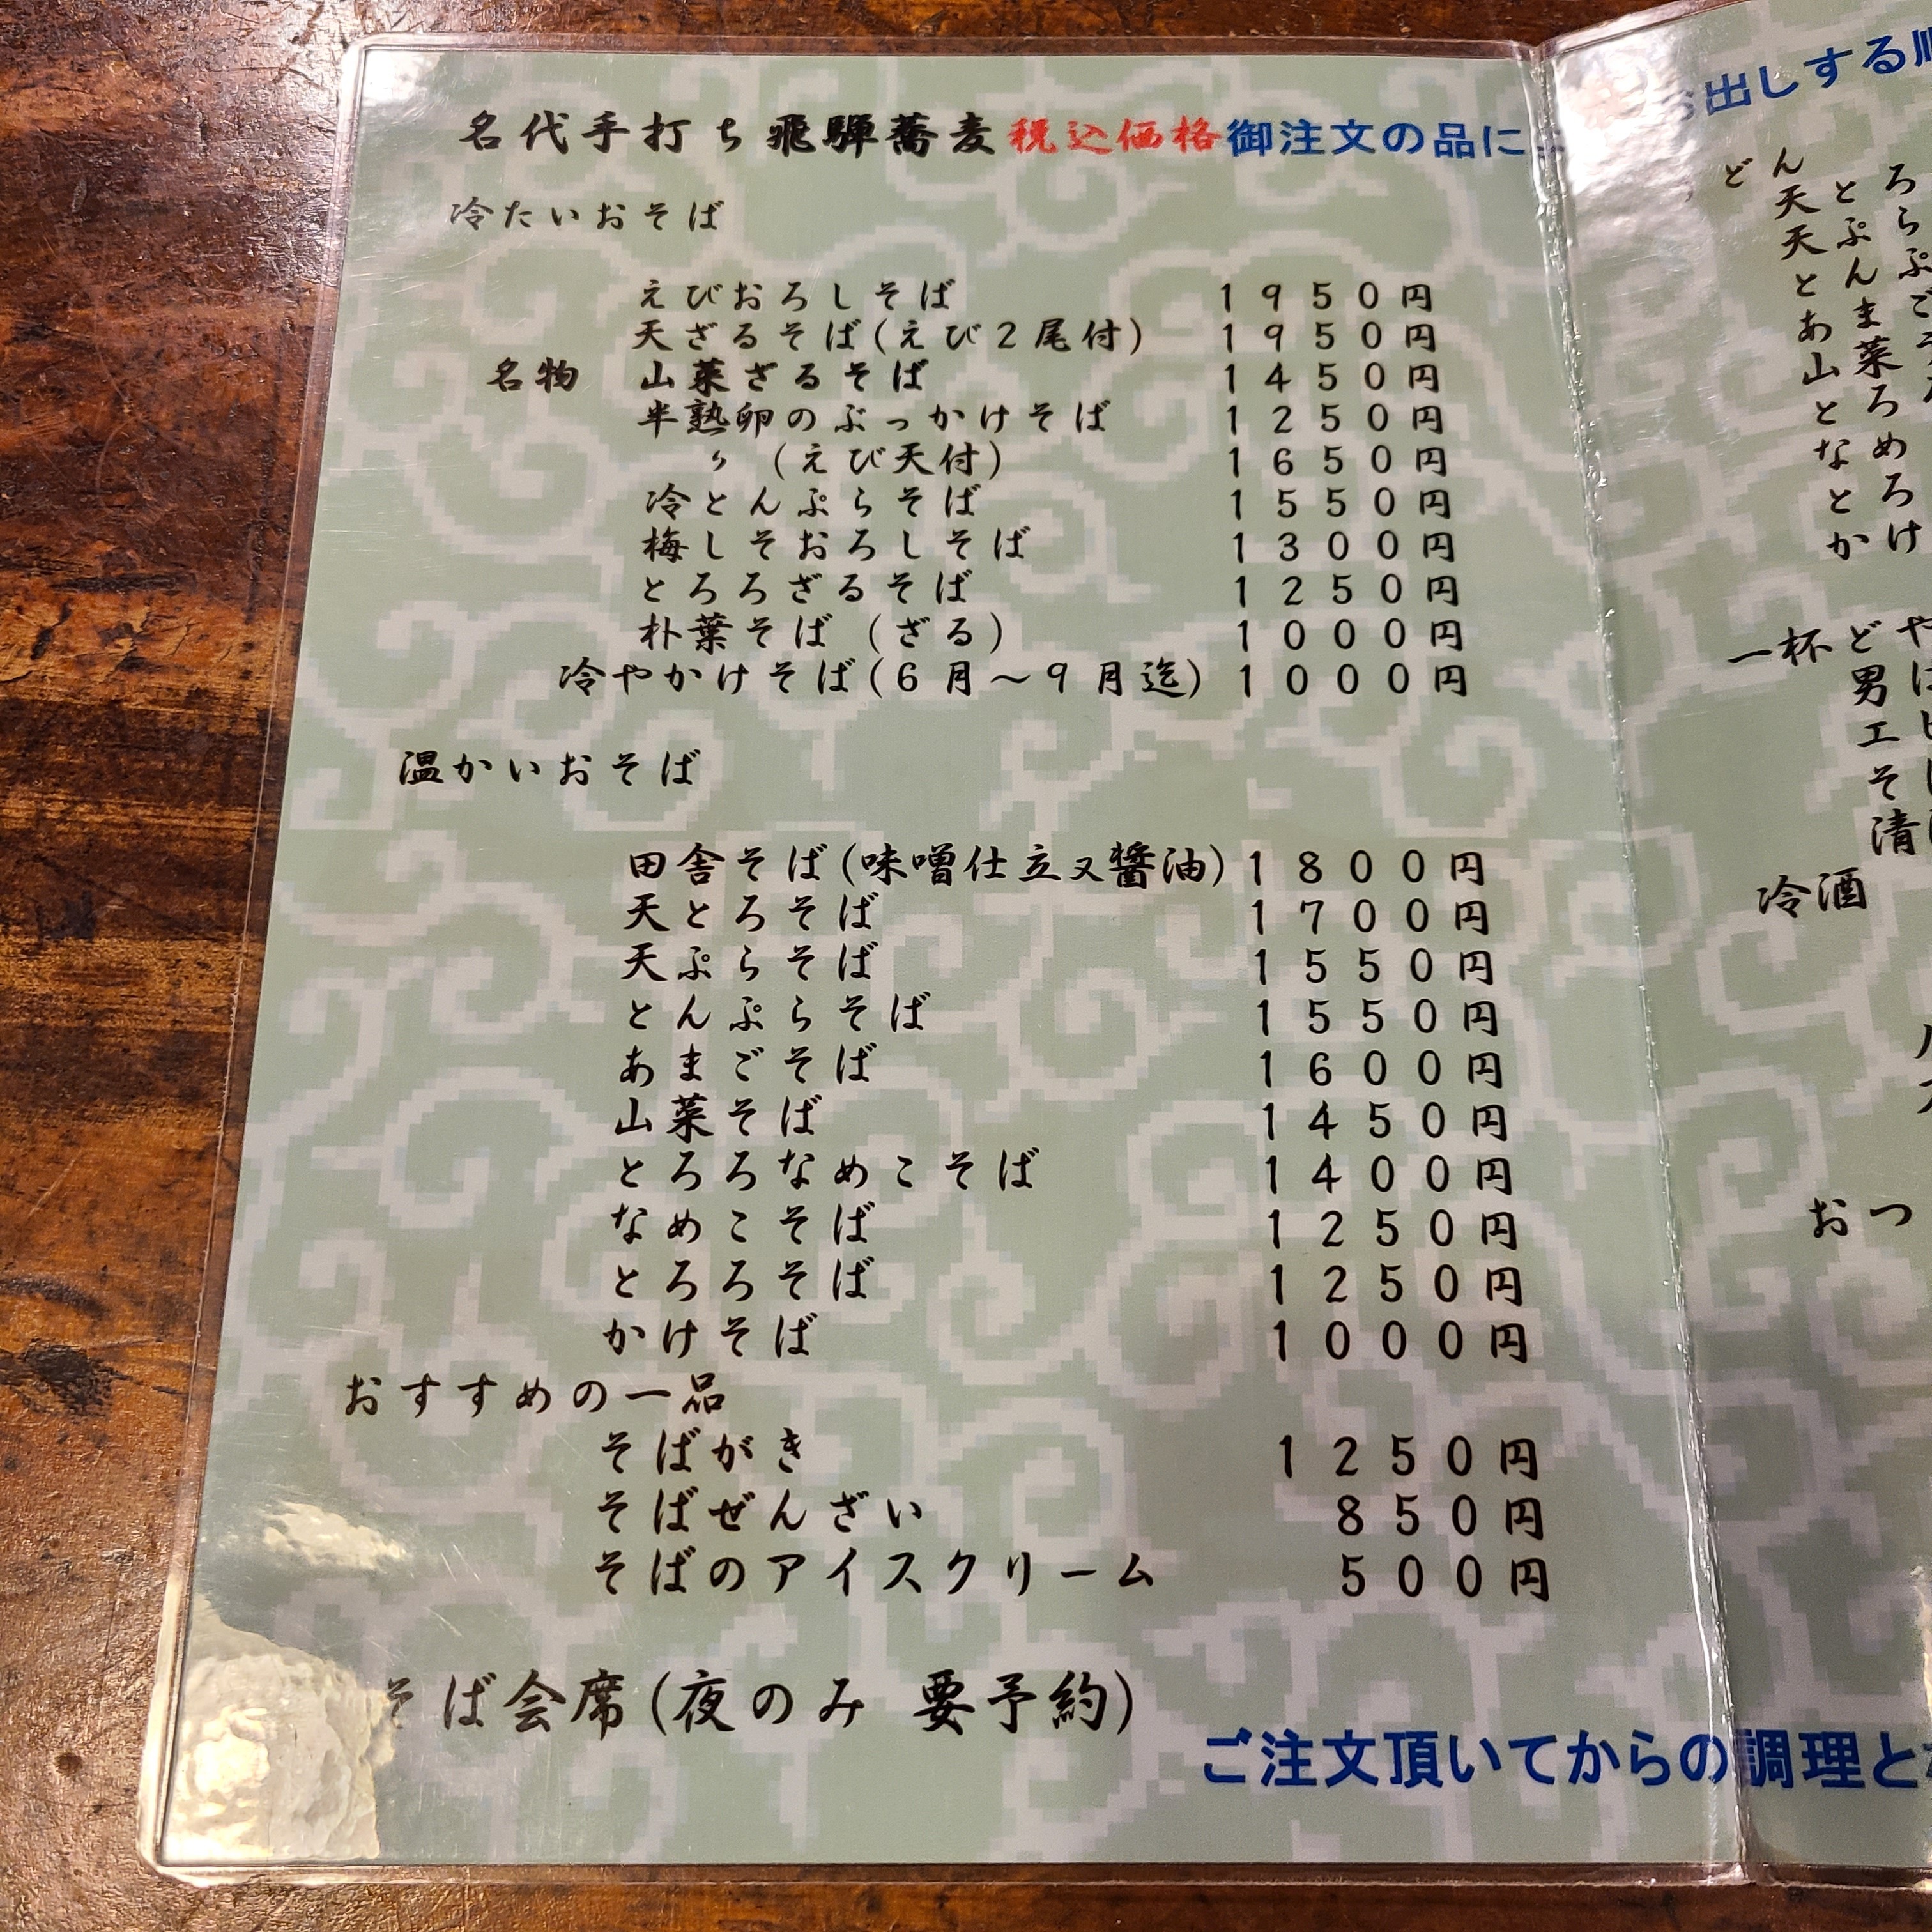 名代手打ち飛騨蕎麦 税込価格 御注文の品に
出しする順
冷たいおそば
えびおろしそば 1950円
天ざるそば(えび2尾付) 1950円
名物 山菜ざるそば 1450円
半熟卵のぶっかけそば 1250円
〃 (えび天付) 1650円
冷とんぷらそば 1550円
梅しそおろしそば 1300円
とろろざるそば 1250円
朴葉そば (ざる) 1000円
冷やかけそば(6月～9月迄) 1000円
温かいおそば
田舎そば(味噌仕立又醤油) 1800円
天とろそば 1700円
天ぷらそば 1550円
とんぷらそば 1550円
あまごそば 1600円
山菜そば 1450円
とろろなめこそば 1400円
なめこそば 1250円
とろろそば 1250円
かけそば 1000円
おすすめの一品
そばがき 1250円
そばぜんざい 850円
そばのアイスクリーム 500円
そば会席(夜のみ 要予約)
ご注文頂いてからの調理と
どん
天とろ
天ぷら
とんぷ
あまご
山菜
とろろ
なめ
とろろ
かけ
一杯ど
男
エ
そ
清
冷酒
おつ